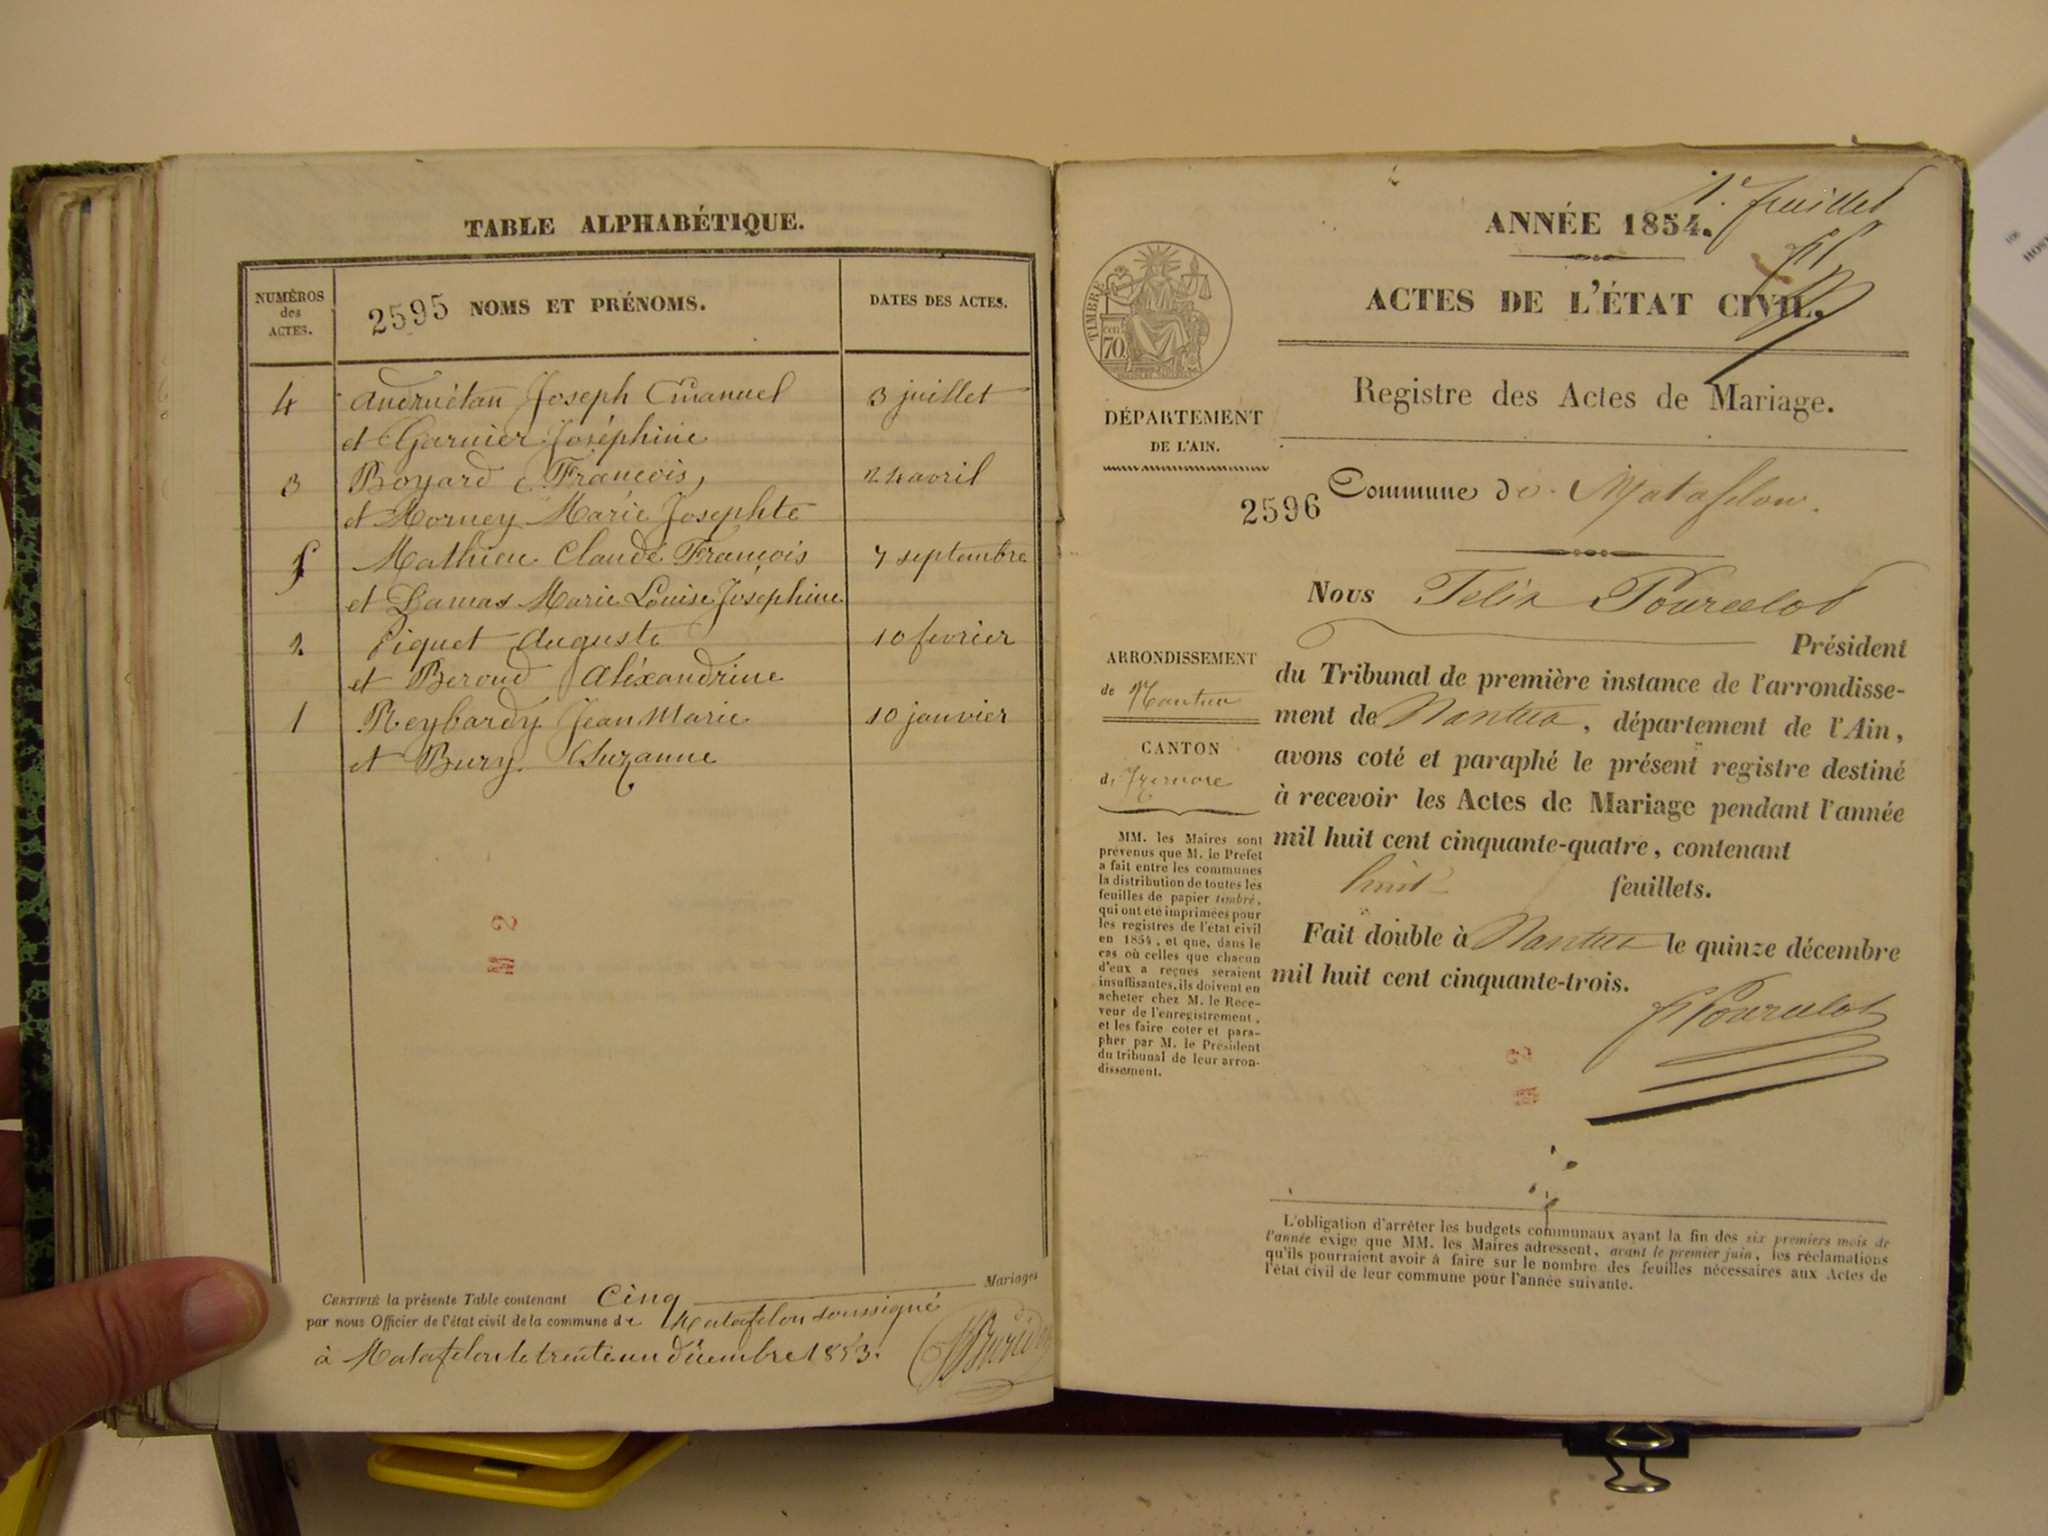 TABLE ALPHABÉTIQUE.
NUMÉROS
des
ACTES.
2595 NOMS ET PRÉNOMS.
DATES DES ACTES.
4 Andruétan Joseph Emanuel 3 juillet
et Garnier Joséphine
3 Boyard François, 24 avril
et Morney Marie Josephte
5 Mathieu Claude François 7 septembre
et Damas Marie Louise Joséphine
2 Piquet Auguste 10 fevrier
et Beroud Aléxandrine
1 Reybardy Jean Marie 10 janvier
et Bury Suzanne
M 2
CERTIFIÉ la présente Table contenant Cinq Mariages
par nous Officier de l'état civil de la commune de Matafelon soussigné
à Matafelon le trente un décembre 1853.
1er feuillet
ANNÉE 1854.
ACTES DE L'ÉTAT CIVIL.
TIMBRE
cen
70.
Registre des Actes de Mariage.
DÉPARTEMENT
DE L'AIN.
2596
Commune de Matafelon.
Nous Félix Pourcelot
Président
du Tribunal de première instance de l'arrondisse-
ment de Nantua, département de l'Ain,
avons coté et paraphé le présent registre destiné
à recevoir les Actes de Mariage pendant l'année
mil huit cent cinquante-quatre, contenant
huit feuillets.
Fait double à Nantua le quinze décembre
mil huit cent cinquante-trois.
F Pourcelot
ARRONDISSEMENT
de Nantua
CANTON
d'Izernore
MM. les Maires sont
prévenus que M. le Préfet
a fait entre les communes
la distribution de toutes les
feuilles de papier timbré,
qui ont été imprimées pour
les registres de l'état civil
en 1854, et que, dans le
cas où celles que chacun
d'eux a reçues seraient
insuffisantes, ils doivent en
acheter chez M. le Rece-
veur de l'enregistrement,
et les faire coter et para-
pher par M. le Président
du tribunal de leur arron-
dissement.
L'obligation d'arrêter les budgets communaux avant la fin des six premiers mois de
l'année exige que MM. les Maires adressent, avant le premier juin, les réclamations
qu'ils pourraient avoir à faire sur le nombre des feuilles nécessaires aux Actes de
l'état civil de leur commune pour l'année suivante.